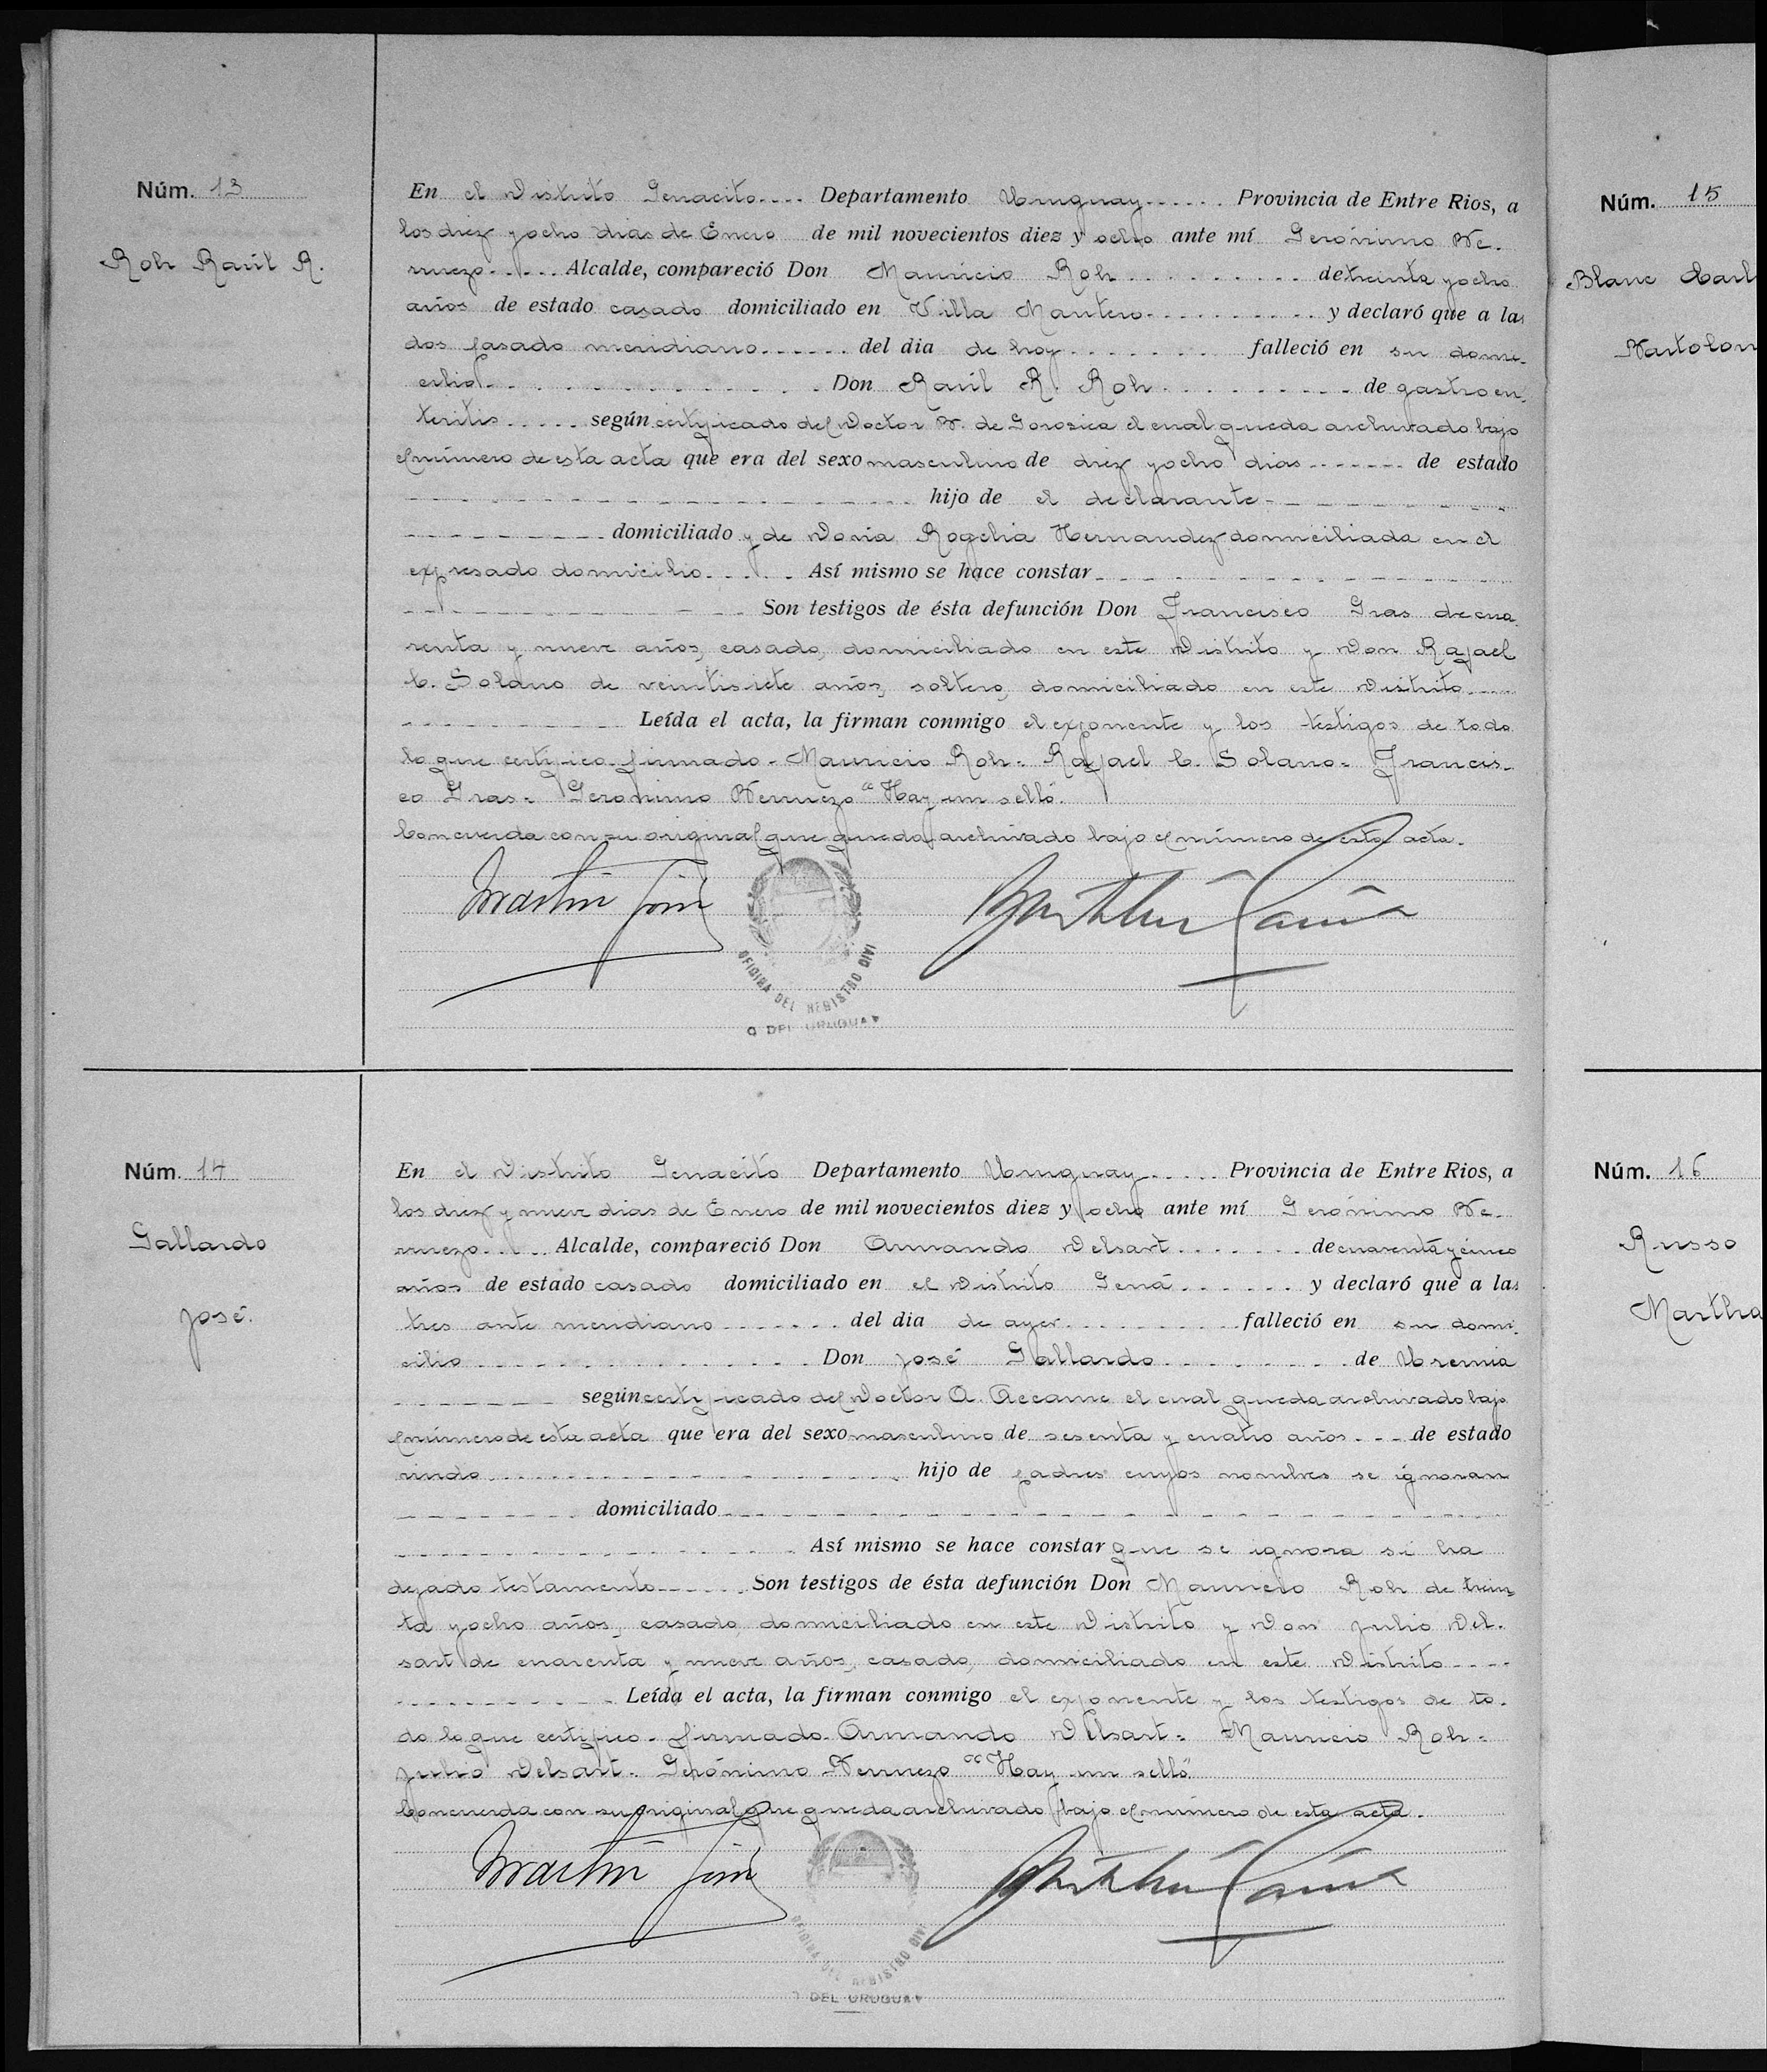 Núm. 13
Roh Raúl R.
En el Distrito Genacito Departamento Uruguay Provincia de Entre Rios, a
los diez y ocho dias de Enero de mil novecientos diez y ocho ante mí Gerónimo Be-
rruezo Alcalde, compareció Don Mauricio Roh de treinta y ocho
años de estado casado domiciliado en Villa Mantero y declaró que a las
dos pasado meridiano del dia de hoy falleció en su domi-
cilio Don Raúl R. Roh de gastroen-
teritis según certificado del Doctor B. de Gorosica el cual queda archivado bajo
el número de esta acta que era del sexo masculino de diez y ocho dias de estado
hijo de el declarante
domiciliado y de Doña Rogelia Hernandez domiciliada en el
expresado domicilio Así mismo se hace constar
Son testigos de ésta defunción Don Francisco Gras de cua-
renta y nueve años, casado, domiciliado en este Distrito y Don Rafael
C. Solano de veintisiete años, soltero, domiciliado en este Distrito
Leída el acta, la firman conmigo el exponente y los testigos de todo
lo que certifico. firmado - Mauricio Roh - Rafael C. Solano - Francis-
co Gras - Geronimo Berruezo "Hay un sello"
Concuerda con su original que queda archivado bajo el número de esta acta.
Martin
OFICINA DEL REGISTRO CIVI
DEL URUGUAY
Núm. 14
Gallardo
José.
En el Distrito Genacito Departamento Uruguay Provincia de Entre Rios, a
los diez y nueve dias de Enero de mil novecientos diez y ocho ante mí Gerónimo Be-
rruezo Alcalde, compareció Don Armando Delsart de cuarenta y cinco
años de estado casado domiciliado en el Distrito Gená y declaró que a las
tres ante meridiano del dia de ayer falleció en su domi-
cilio Don José Gallardo de Uremia
según certificado del Doctor A. Accame el cual queda archivado bajo
el número de esta acta que era del sexo masculino de sesenta y cuatro años de estado
viudo hijo de padres cuyos nombres se ignoran
domiciliado
Así mismo se hace constar que se ignora si ha
dejado testamento Son testigos de ésta defunción Don Mauricio Roh de trein-
ta y ocho años, casado, domiciliado en este Distrito y Don Julio Del-
sart de cuarenta y nueve años, casado, domiciliado en este Distrito
Leída el acta, la firman conmigo el exponente y los testigos de to-
do lo que certifico - firmado - Armando Delsart - Mauricio Roh -
Julio Delsart - Gerónimo Berruezo "Hay un sello"
Concuerda con su original que queda archivado bajo el número de esta acta.
Martin
OFICINA DEL REGISTRO CIVI
DEL URUGUAY
Núm. 15
Blanc Carl
Bartolom
Núm. 16
Russo
Martha